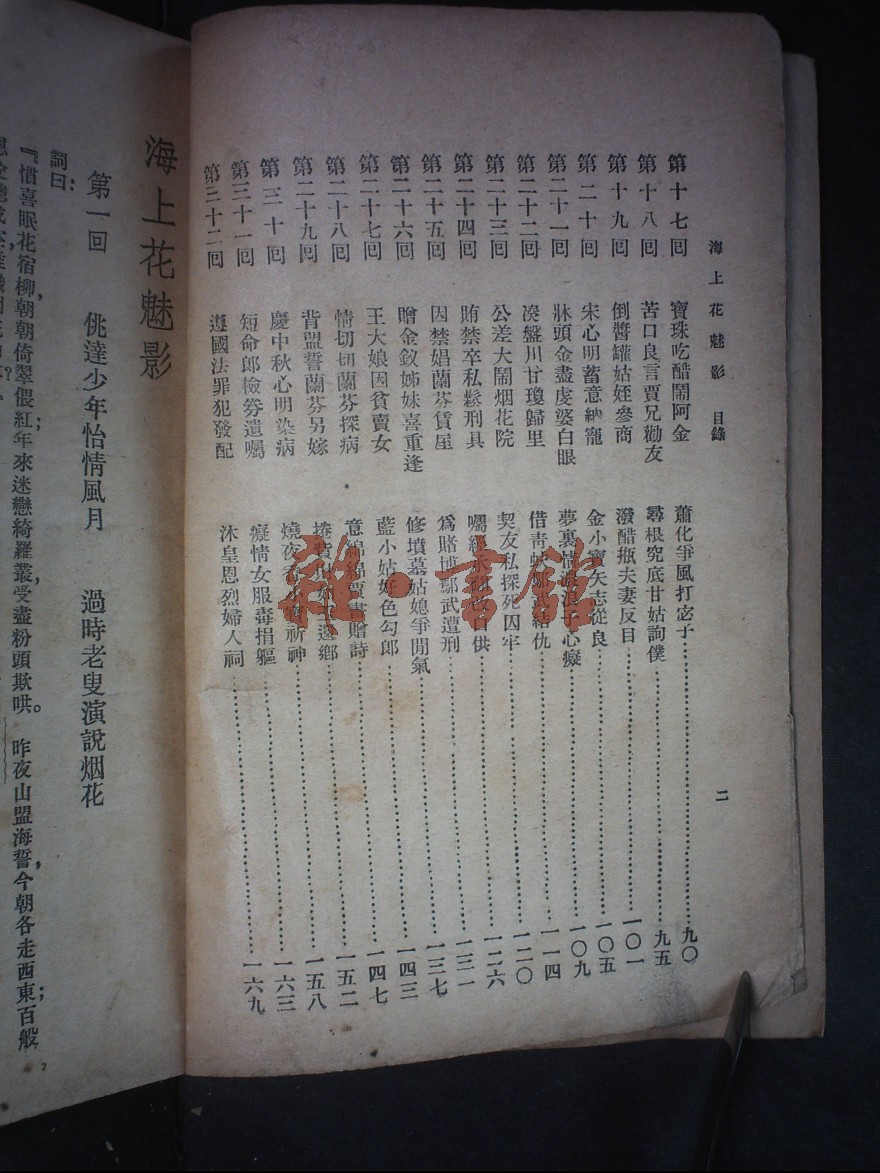 海上花魅影 目錄
二
第十七回 寶珠吃醋鬧阿金 蕭化爭風打宓子 九〇
第十八回 苦口良言賈兄勸友 尋根究底甘姑詢僕 九五
第十九回 倒醬罐姑姪參商 潑醋瓶夫妻反目 一〇一
第二十回 宋心明蓄意納寵 金小寶矢志從良 一〇五
第二十一回 牀頭金盡虔婆白眼 夢裏情 浪子心癡 一〇九
第二十二回 湊盤川甘瓊歸里 借青蚨 結仇 一一四
第二十三回 公差大鬧烟花院 契友私探死囚牢 一二〇
第二十四回 賄禁卒私鬆刑具 囑 供 一二六
第二十五回 因禁娼蘭芬賃屋 爲賭博鄢武遭刑 一三一
第二十六回 贈金釵姊妹喜重逢 修墳墓姑媳爭閒氣 一三七
第二十七回 王大娘因貧賣女 藍小姑好色勾郎 一四三
第二十八回 情切切蘭芬探病 意綿綿賈書贈詩 一四七
第二十九回 背盟誓蘭芬另嫁 捲貲 還鄉 一五二
第三十回 慶中秋心明染病 燒夜香小寶祈神 一五八
第三十一回 短命郎檢劵遺囑 癡情女服毒捐軀 一六三
第三十二回 遵國法罪犯發配 沐皇恩烈婦入祠 一六九
海上花魅影
第一回 佻達少年怡情風月 過時老叟演說烟花
詞曰:
『惜喜眠花宿柳,朝朝倚翠偎紅;年來迷戀綺羅叢,受盡粉頭欺哄。 昨夜山盟海誓,今朝各走西東;百般
雜·書館